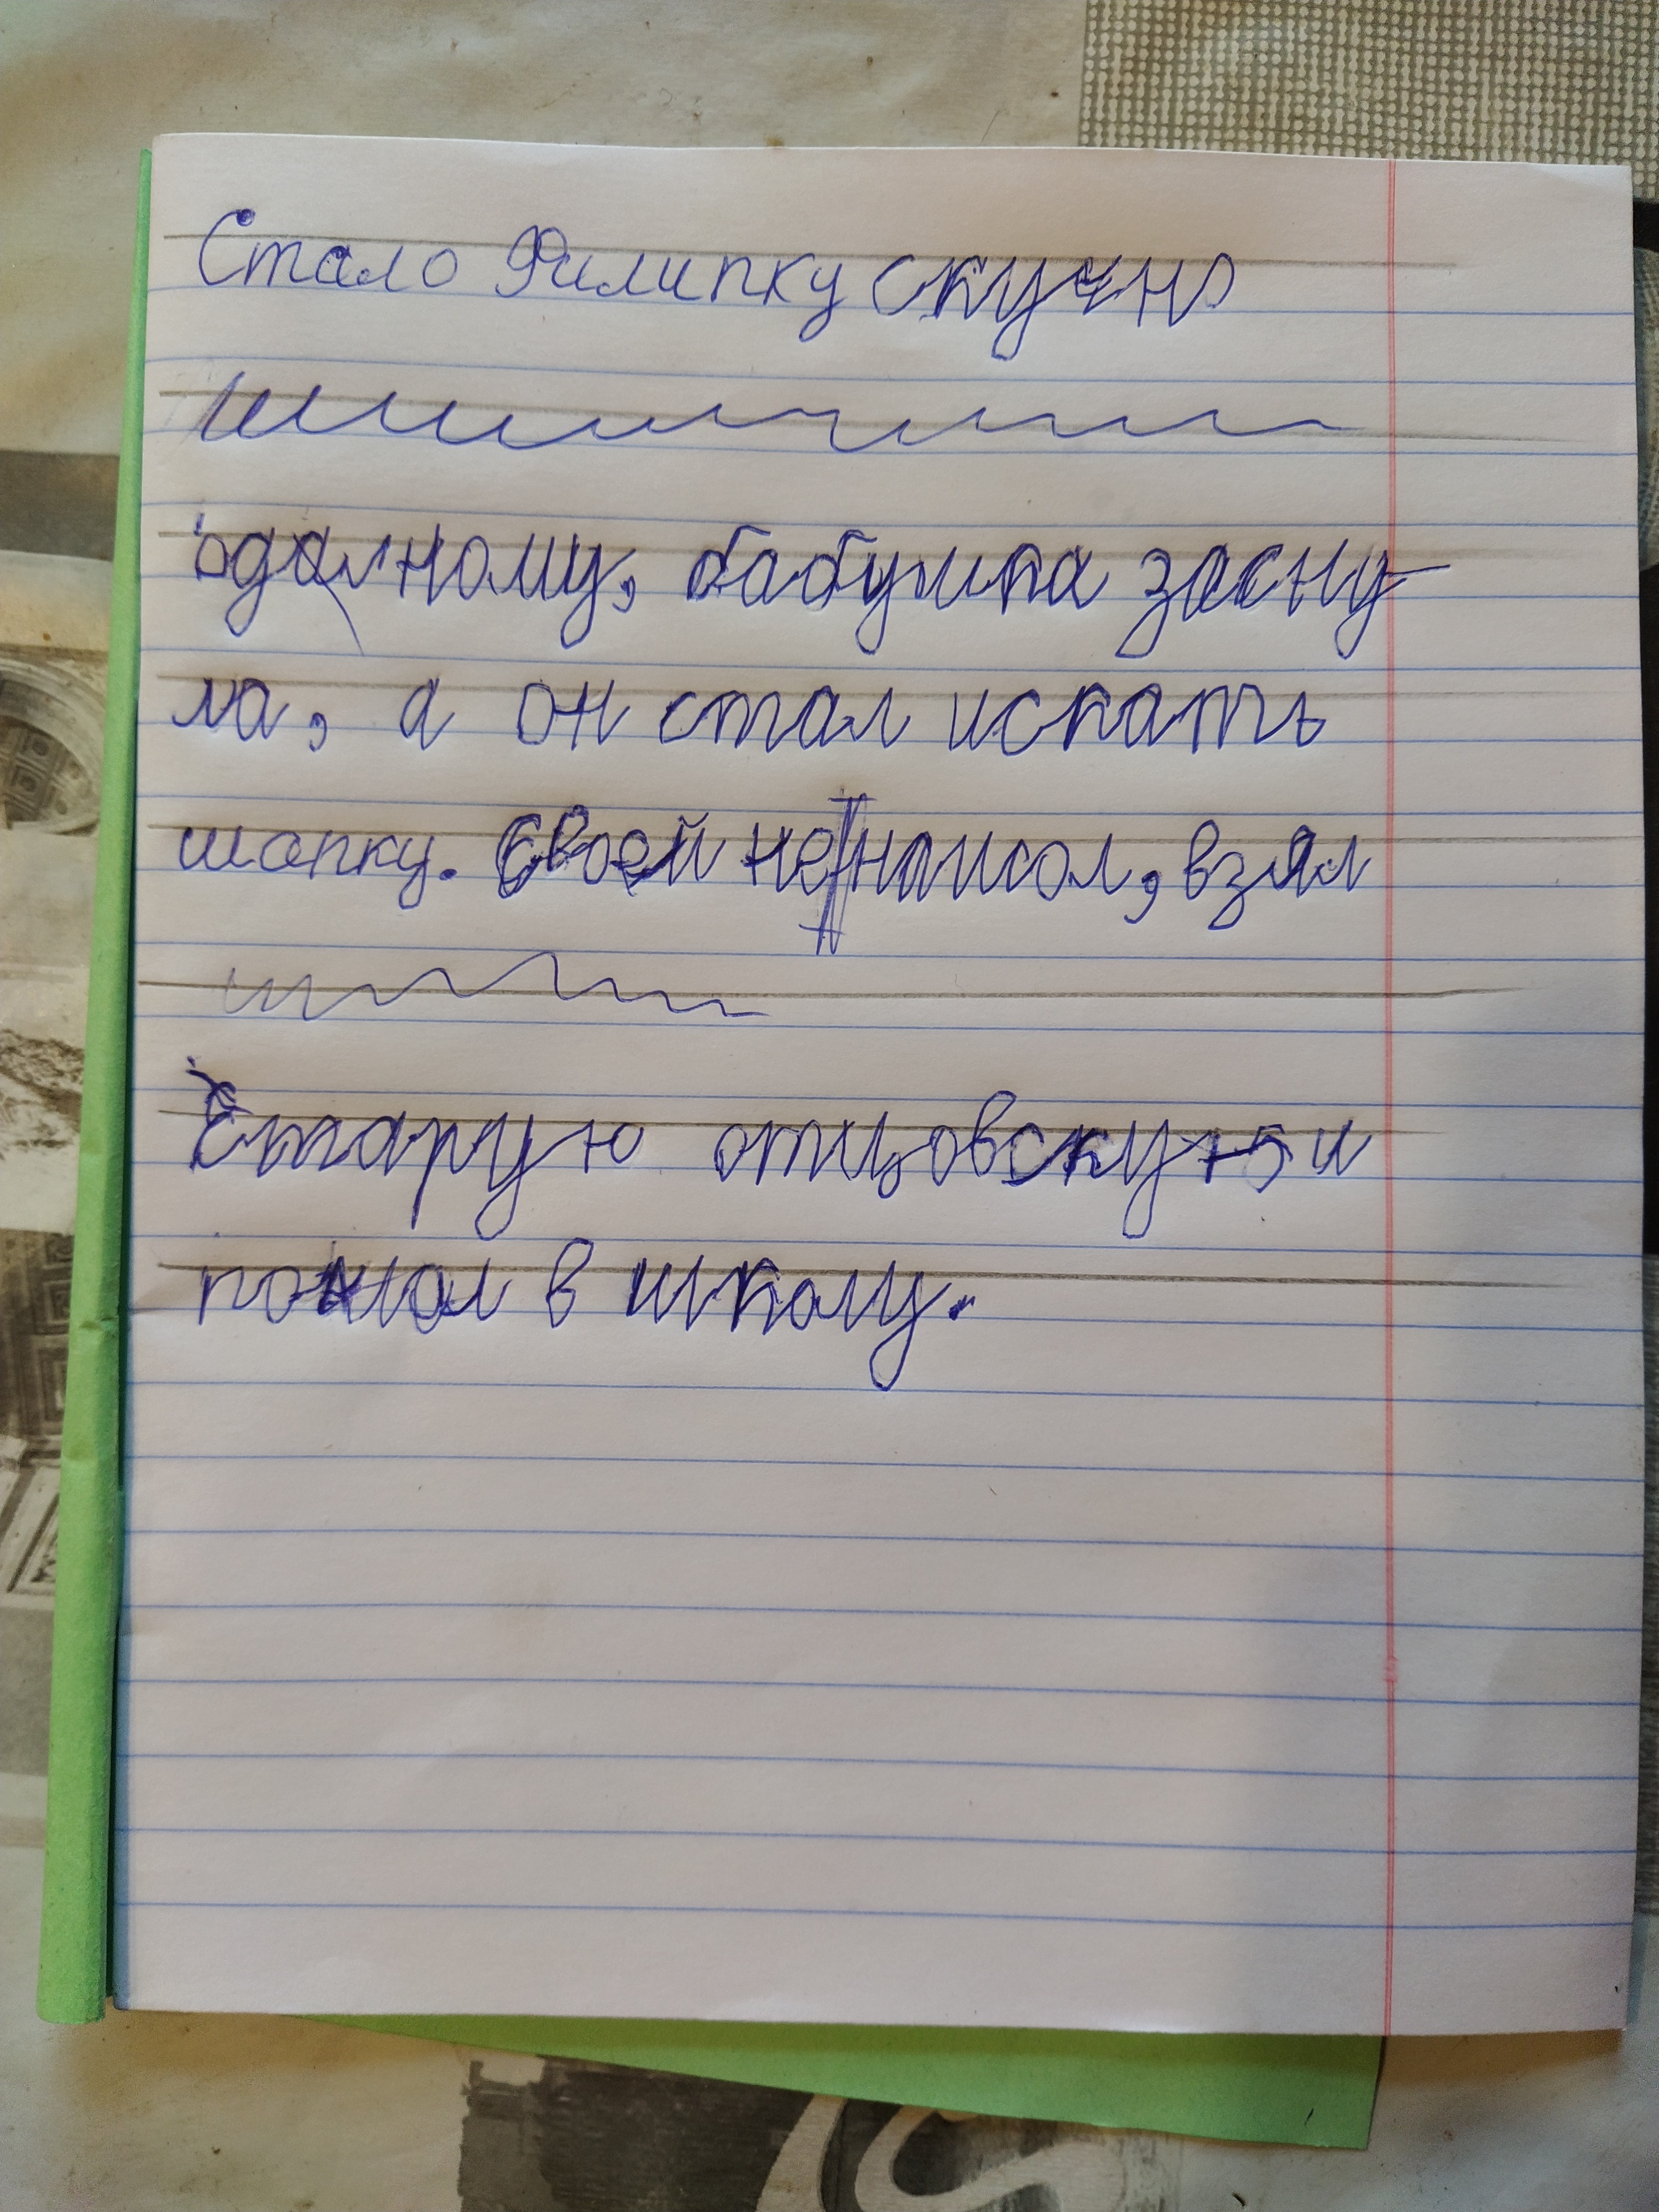 Стало Филипку скучно
одному, бабушка засну-
ла, а он стал искать
шапку. Своей не нашол, взял
Старую отцовскую и
пошол в школу.